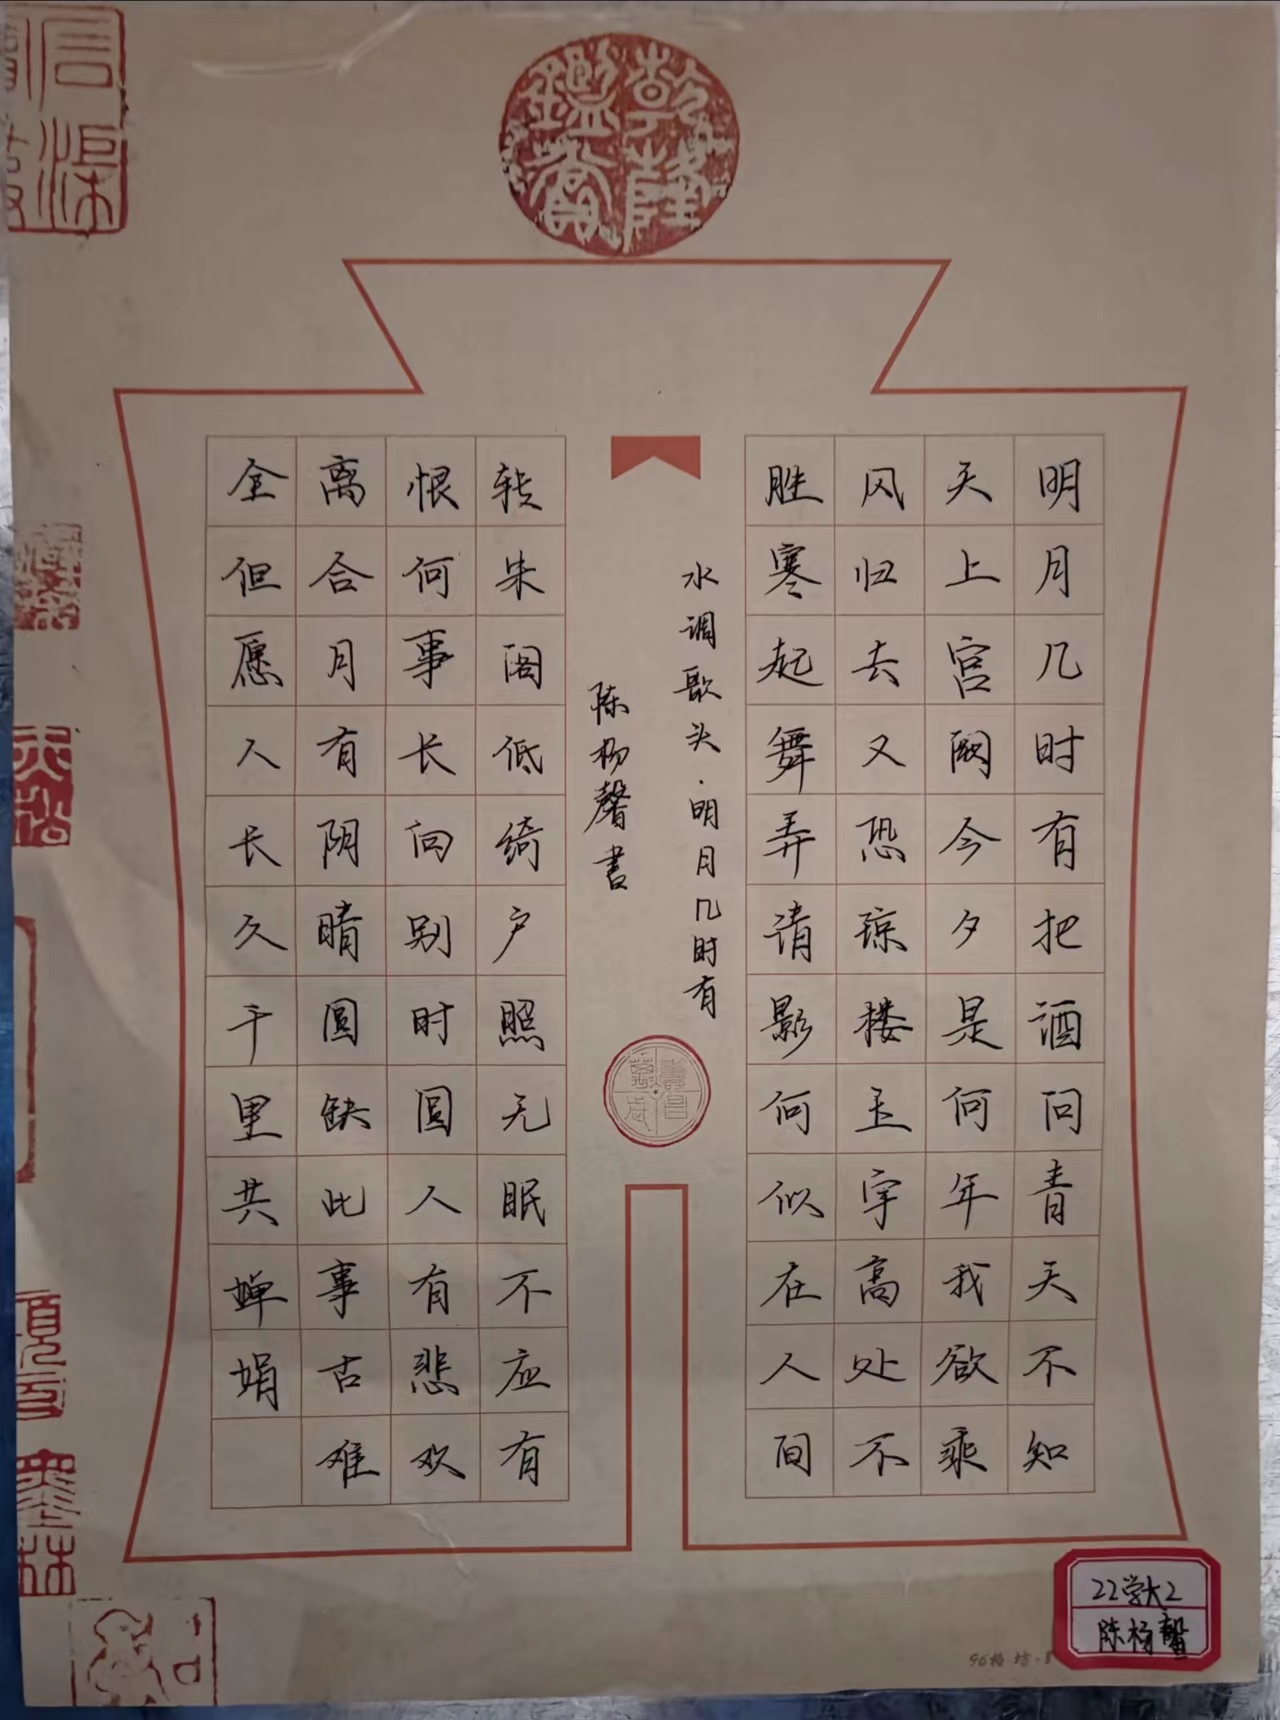 乾隆
鑑賞
明月几时有把酒问青天不知
天上宫阙今夕是何年我欲乘
风归去又恐琼楼玉宇高处不
胜寒起舞弄清影何似在人间
水调歌头·明月几时有
陈杨馨书
转朱阁低绮户照无眠不应有
恨何事长向别时圆人有悲欢
离合月有阴晴圆缺此事古难
全但愿人长久千里共婵娟
墨林
22学大2
陈杨馨
96格